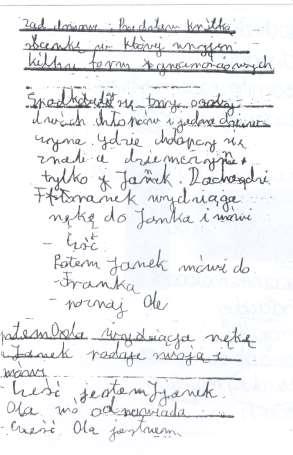 zad domowe: Przedstaw krótką
scenkę w której użyjesz
kilku form grzecznościowych
Spotkały się trzy osoby
dwóch chłopców i jedna dziew
czyna gdzie chłopcy się
znali a dziewczynę
tylko Janek. Podchodzi
Franek wydziąga
rękę do Janka i mówi
- Cześć
Potem Janek mówi do
- Franka
- poznaj Ole
potem Ola wydziąga rękę
Janek podaje swoją i
mówi
- Cześć jestem Janek.
Ola mó odpowiada
- Cześć Ola jestem